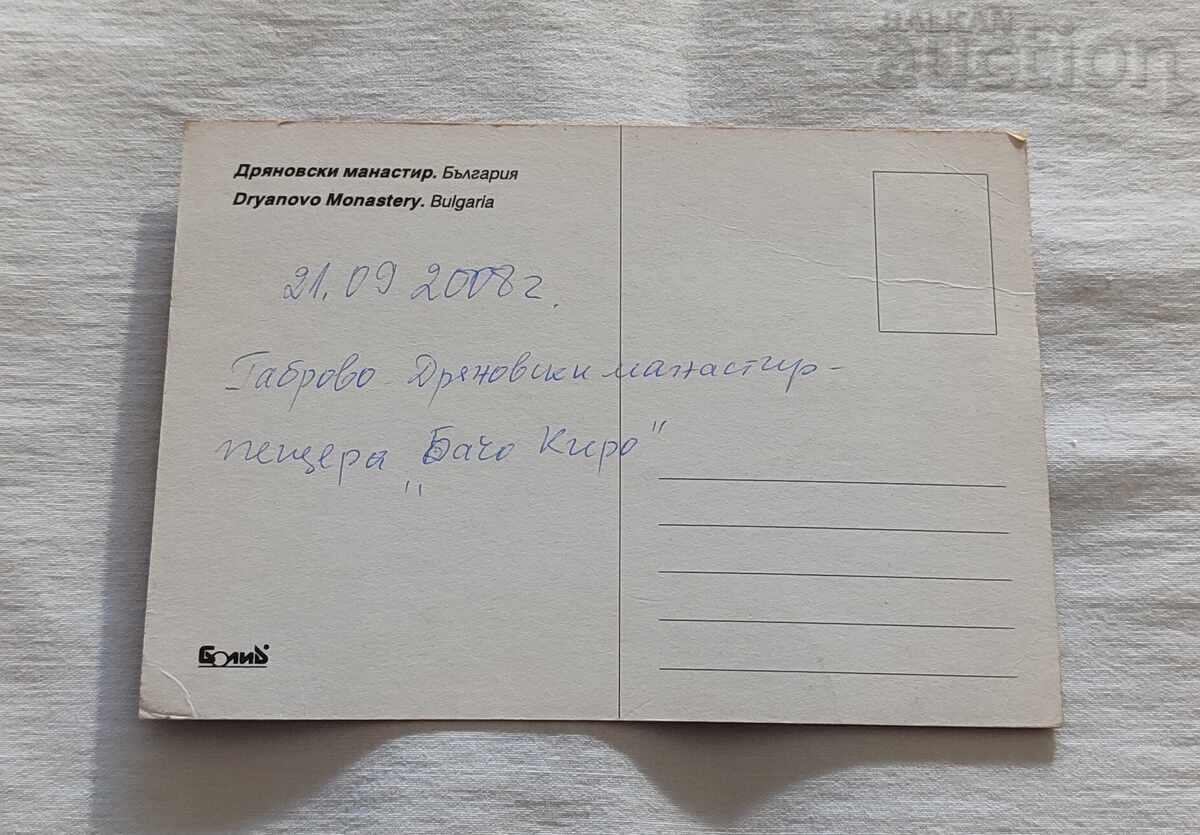 BALKAN
auction
Дряновски манастир. България
Dryanovo Monastery. Bulgaria
21.09 2008 г.
Габрово - Дряновски манастир -
пещера „Бачо Киро"
Болид